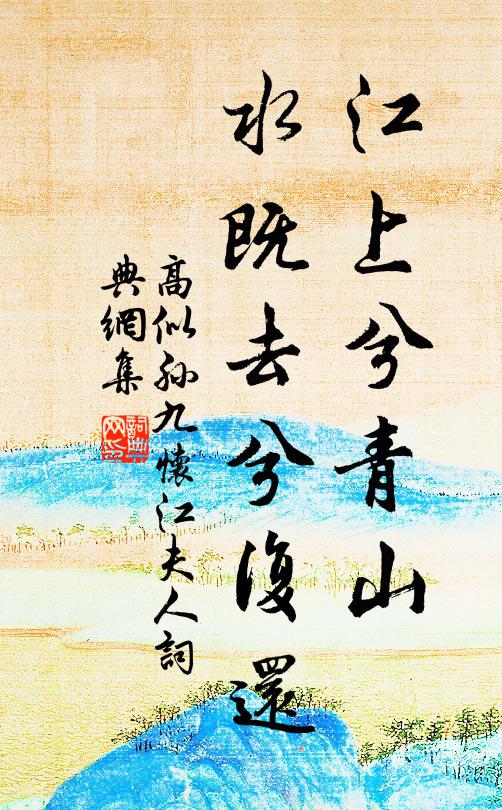 江上兮青山
水既去兮復還
高似孫九懷江夫人詞
典網集
詞典网印